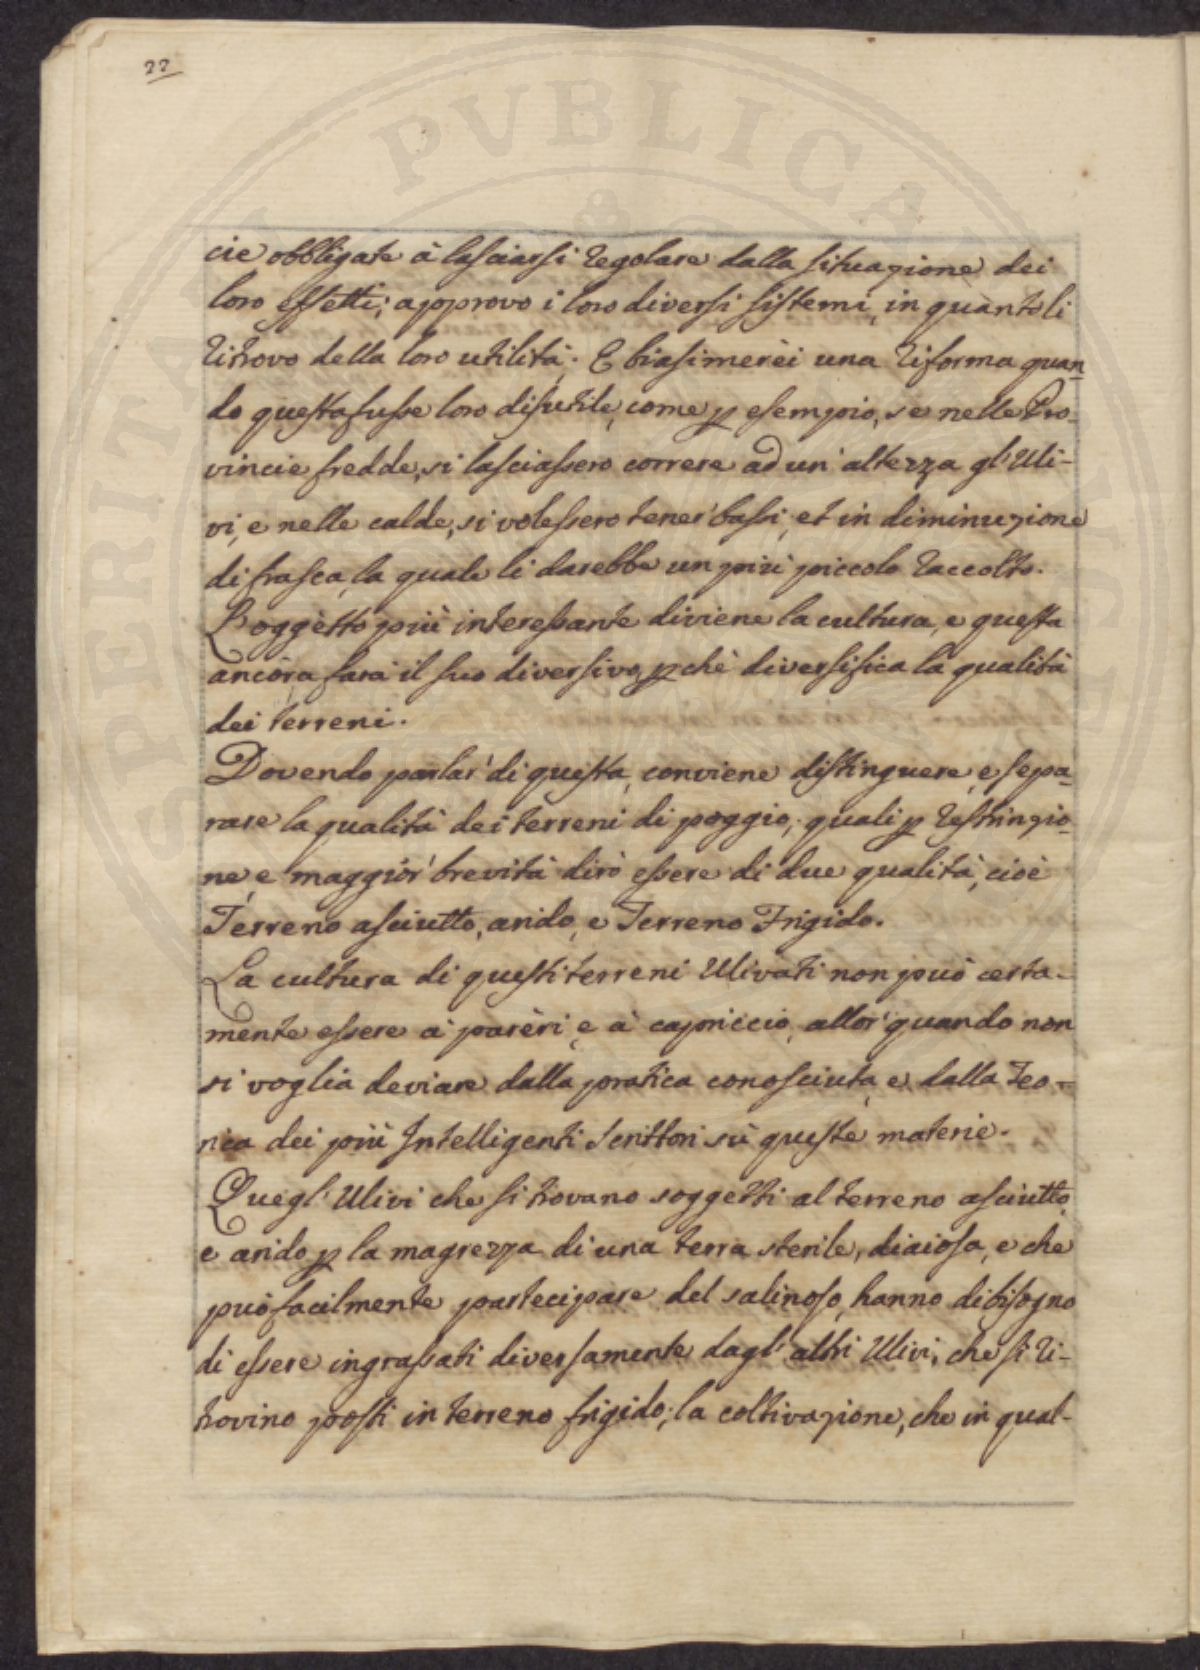 22
cie obbligate à lasciarsi regolare dalla situazione dei
loro effetti; approvo i loro diversi sistemi, in quànto li
ritrovo della loro utilità. E biasimerèi una riforma quan
do questa fusse loro disutile, come p esempio, se nelle Pro-
vincie fredde, si lasciassero correre ad un' altezza gl' Uli-
vi, e nelle calde, si volessero tener' bassi, et in diminuzione
di frasca, la quale li darebbe un più piccolo raccolto.
L'oggètto più interessante diviene la cultura, e questa
ancòra farà il suo diversivo, pchè diversifica la qualità
dei terreni.
Dovendo parlar' di questa, conviene distinguere, e sepa-
rare la qualità dei terreni di poggio, quali p restrinzio-
ne, e maggiòr' brevità dirò essere di due qualità, cioè
Terreno asciutto, arido, e Terreno Frigido.
La cultura di questi terreni Ulivati non può certa-
mente essere à parèri, e à capriccio, allor' quando non
si voglia deviare dalla pratica conosciuta, e dalla Teo-
rica dei più Intelligenti Scrittori sù queste materie.
Quegl' Ulivi che si trovano soggetti al terreno asciutto,
e arido p la magrezza di una terra sterile, diaiosa, e che
può facilmente partecipare del salinoso, hanno di bisogno
di essere ingrassati diversamente dagl' altri Ulivi, che si ri-
trovino posti in terreno frigido; la coltivazione, che in qual-
PERITATI PVBLICAE